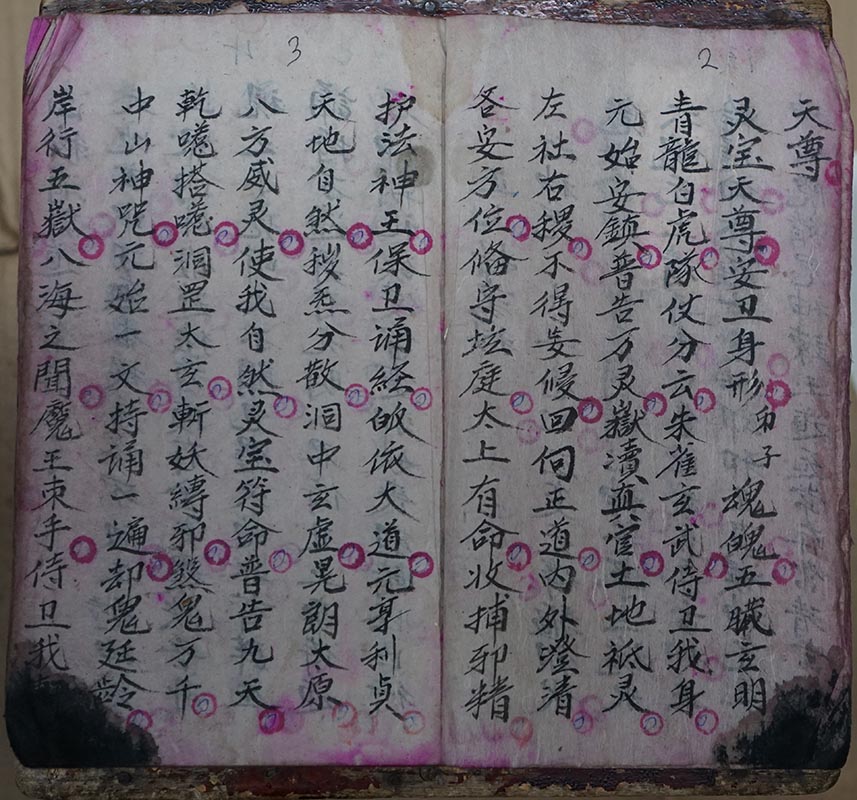 2
天尊
灵宝天尊安卫身形卯子魂魄五臓玄明
青龍白虎隊仗分云朱雀玄武侍卫我身
元始安鎮普告万灵嶽瀆真官土地祇灵
左社右稷不得妄侵回向正道内外澄清
各安方位俻守坛庭太上有命收捕邪精
3
护法神王保卫诵経皈依大道元亨利貞
天地自然秽炁分散洞中玄虚晃朗太原
八方威灵使我自然灵宝符命普告九天
乾嘥搭嘥洞罡太玄斬妖縛邪煞鬼万千
中山神咒元始一文持诵一遍却鬼延龄
岸行五嶽八海之聞魔王束手侍卫我